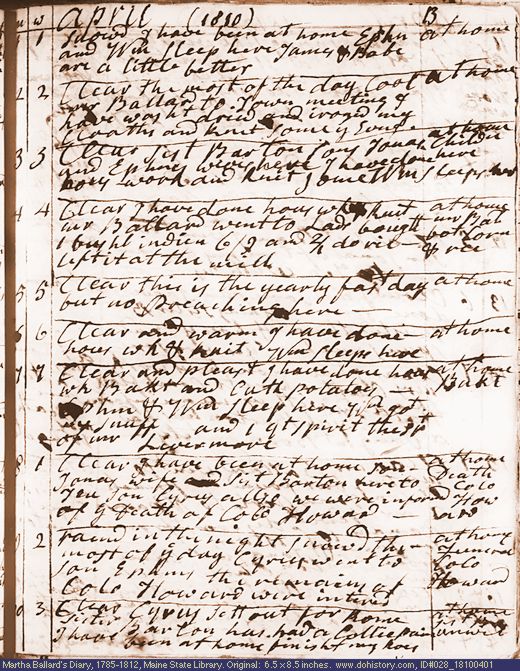 m w April (1810) B
1 Snowd I have been at home Ephm at home
and Wm sleep here James & Babe
are a little better
2 2 Clear the most of the day Cool at home
mr Ballard to Town meeting I
have washt dried and irond my
Cloaths and knit some
3 3 Clear Sist Barton Cyrus Jonas Children at home
and Ephms were here I have done here
hous work and knit some Wm sleeps here
4 4 Clear I have done hous wk knit at home
mr Ballard went to Lads bought mr Bal
1 bushl indien 6/9 and do rie bot Corn
left it at the mill & rie
5 5 Clear this is the yearly fast day at home
but no Preaching here
6 6 Clear and warm I have done at home
hous wk & knit Wm Sleeps here
7 7 Clear and pleast I have done hous at home
wk Bakt and Cutt potatoes Bakt
Ephm & Wm sleep here
snuff and 1 qt spirit
of mr Livermore
8 1 Clear I have been at home at home
Jonas wife and Sist Barton here to Death
Tea Son Cyrus allso we were informd Colo
of ye Death of Colo Howard How
ard
9 2 raind in the night snowd the at home
most of ye day Cyrus went to Funeral
son Ephms the remains of Colo
Colo Howard were intered Howard
10 3 Clear Cyrus sett out for home at home
Sister Barton has had a Collic pain
I have been at home finisht my hoes
Martha Ballard's Diary, 1785-1812, Maine State Library. Original: 6.5 x 8.5 inches. www.dohistory.com, ID#028_18100401